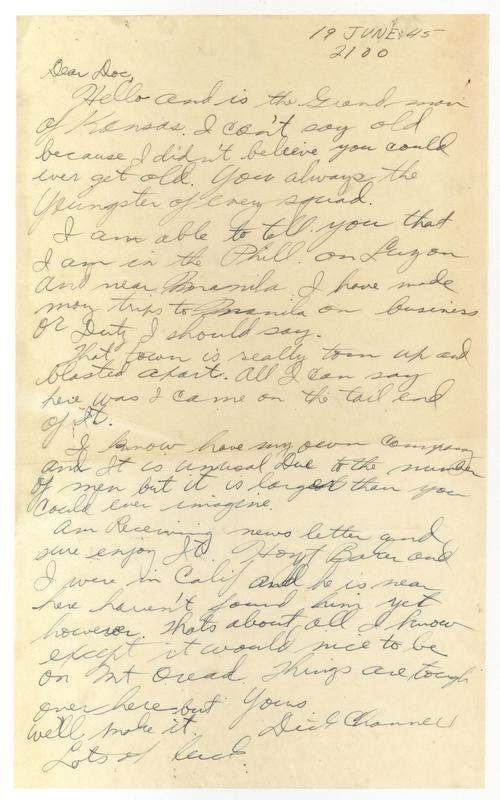 19 JUNE 45
2100
Dear Doc,
Hello and is the Grand man
of Kansas. I can't say old
because I didn't beleive you could
ever get old. You always the
Youngster of every squad.
I am able to tell you that
I am in the Phill. on Luzon
and near Manila. I have made
many trips to Manila on business
or Duty I should say.
That town is really torn up and
blasted apart. All I can say
here was I came on the tail end
of it.
I know have my own company
and It is unusal Due to the number
of men but it is larger than you
could ever imagine.
Am Receiving news letter and
sure enjoy It. Hoyt Baker and
I were in Calif and he is near
here haven't found him yet
however. Thats about all I know
except it would nice to be
on Mt Oread. Things are tough
over here but Yours
we'll make it. Dick Channel
Lots of luck.